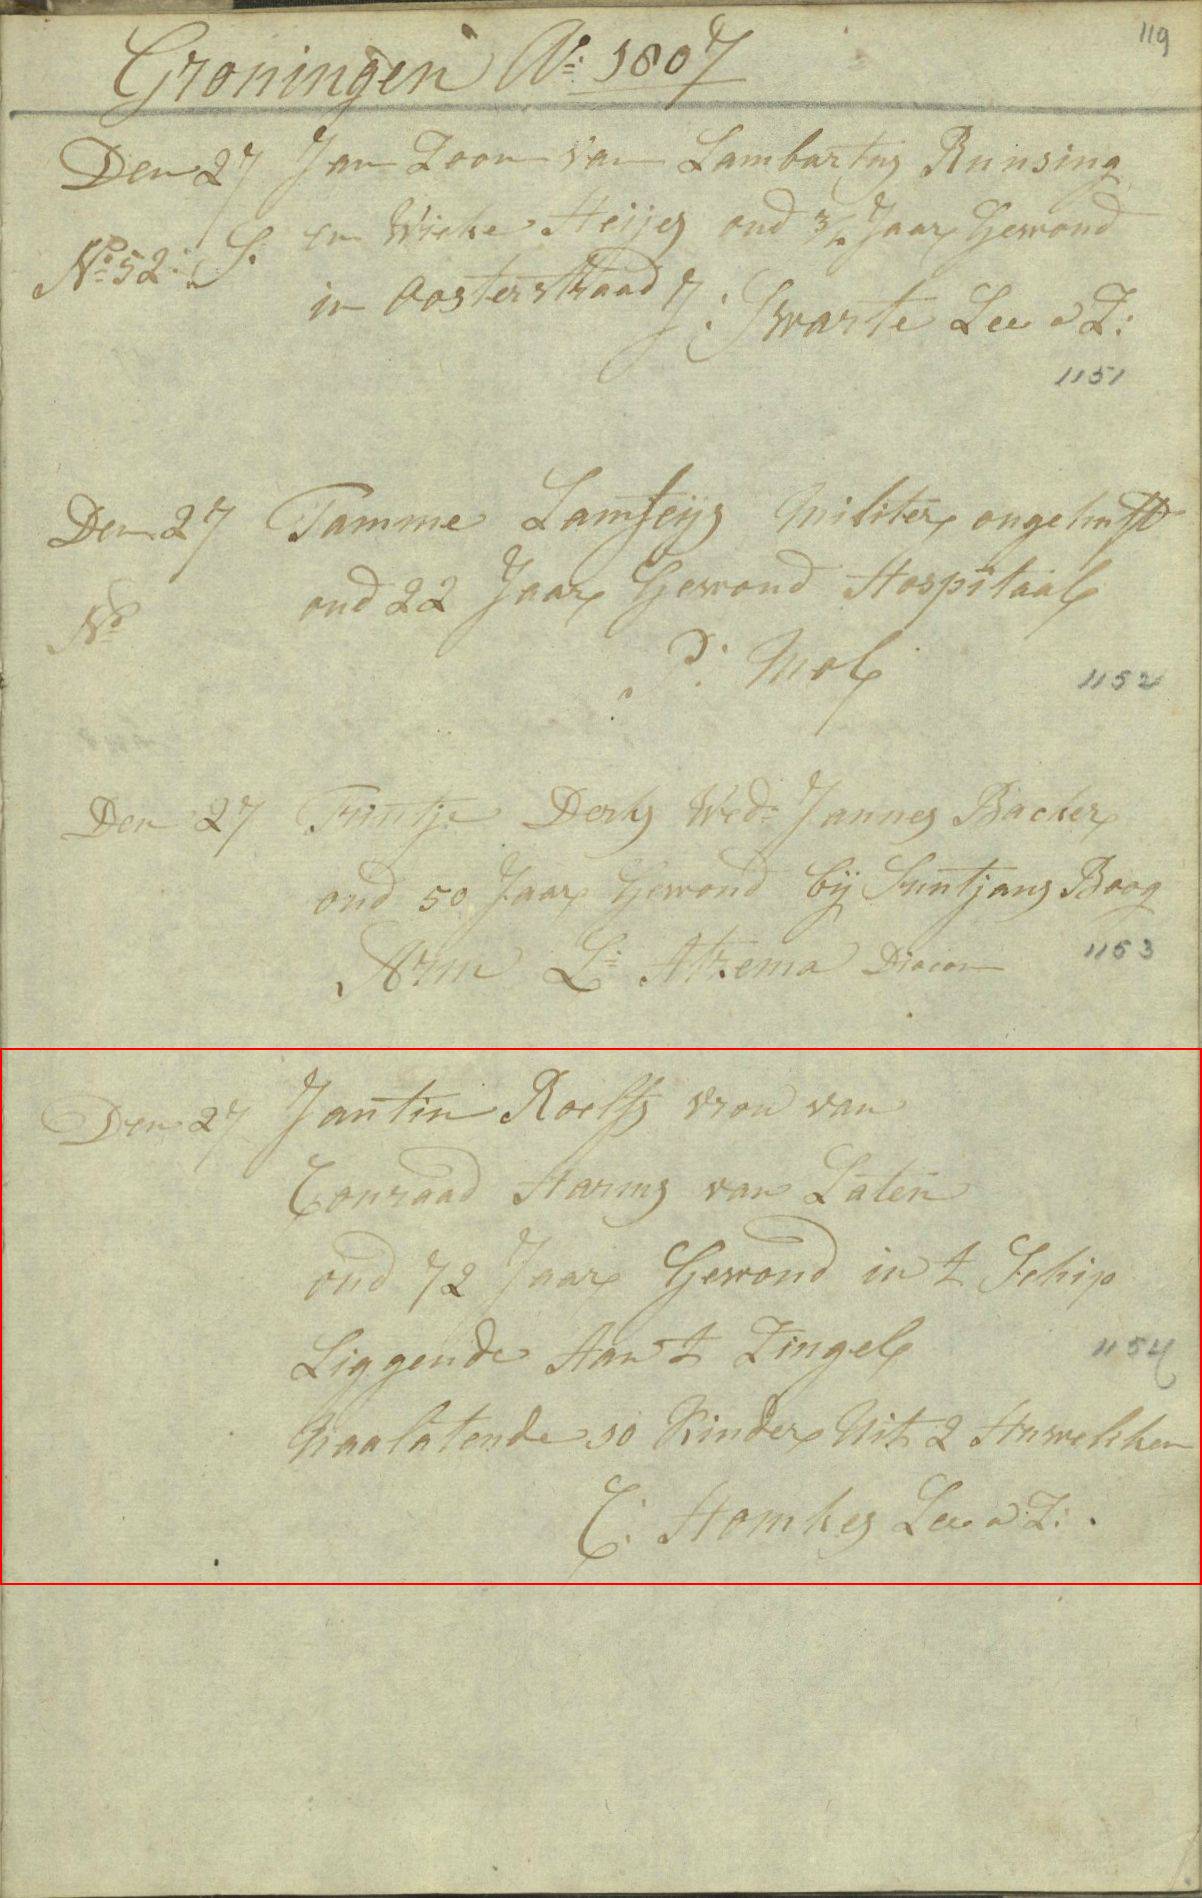 119
Groningen Ao: 1807
Den 27 Jan Zoon van Lambartus Runsing
en Wieke Heijes oud 3/4 Jaar Gewond
No: 52: S:
in Oosterstraad J: Swarte Lee a Z:
1151
Den 27 Tamme Lamfeijs Militer ongehuft
oud 22 Jaar Gewond Hospitaal
No
P: Mol
1152
Den 27 Trintje Derks Wed: Jannes Backer
oud 50 Jaar Gewond bij Suntjans Boog
Arm L: Atzema Diacon
1153
Den 27 Jantin Roelfs vrou van
Conraad Harms van Laten
oud 72 Jaar Gewond in t Schip
Liggende Aan t Zingel
1154
Naalatende 10 Kinder Uit 2 Huwelkken
C: Homkes Lee a: Z: .